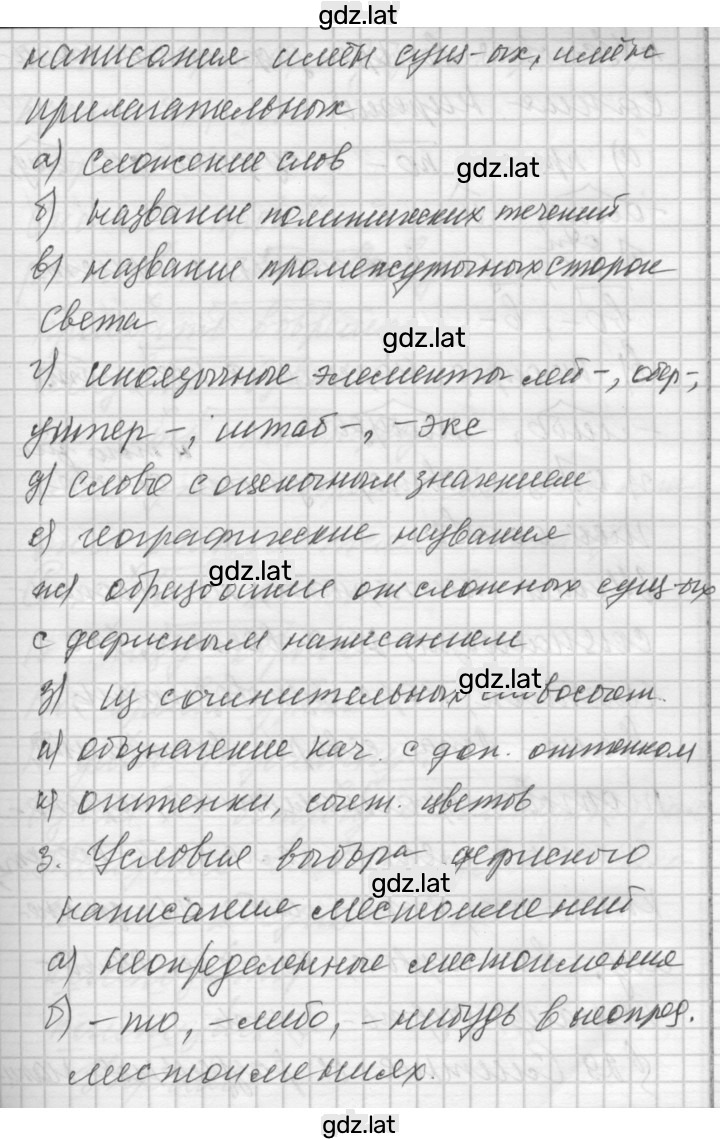 gdz.lat
написания имён сущ-ых, имён
прилагательных
а) сложение слов
gdz.lat
б) название политических течений
в) название промежуточных сторон
света
gdz.lat
г) иноязычные элементы лей-, обер-,
унтер-, штаб-, -экс
д) слова с оценочным значением
е) географические названия
gdz.lat
ж) образование от сложных сущ-ых
с дефисным написанием
gdz.lat
з) из сочинительных словосочет.
и) обозначение кач. с доп. оттенком
к) оттенки, сочет. цветов
3. Условия выбора дефисного
gdz.lat
написания местоимений
а) неопределенные местоимения
б) -то, -либо, -нибудь в неопред.
местоимениях.
gdz.lat